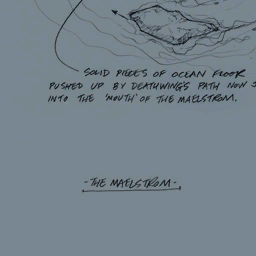 SOLID PIECES OF OCEAN FLOOR
PUSHED UP BY DEATHWING'S PATH NOW
INTO THE 'MOUTH' OF THE MAELSTROM.
-THE MAELSTROM-